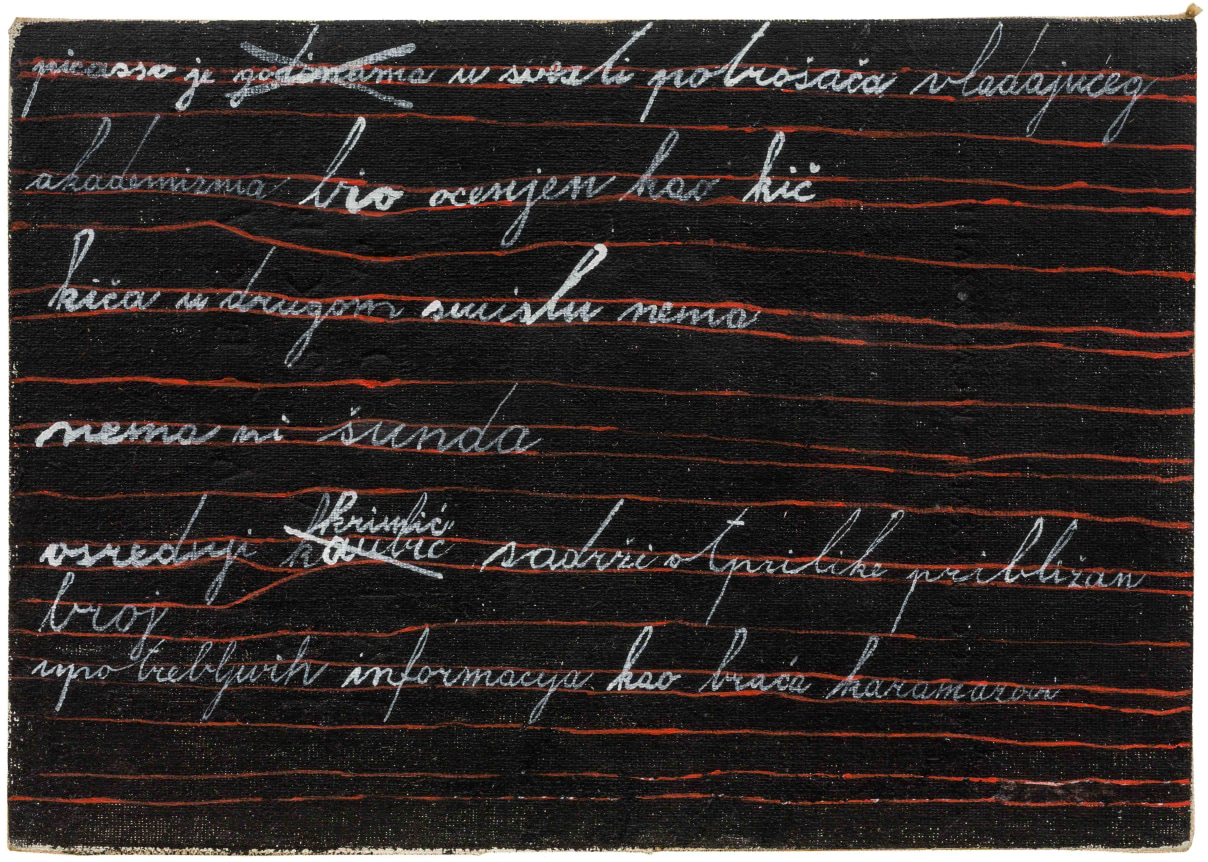 picasso je godinama u svesti potrošača vladajućeg
akademizma bio ocenjen kao kič
kiča u drugom smislu nema
nema ni šunda
krimić
osrednji kaubić sadrži otprilike približan
broj
upotrebljivih informacija kao braća karamazovi